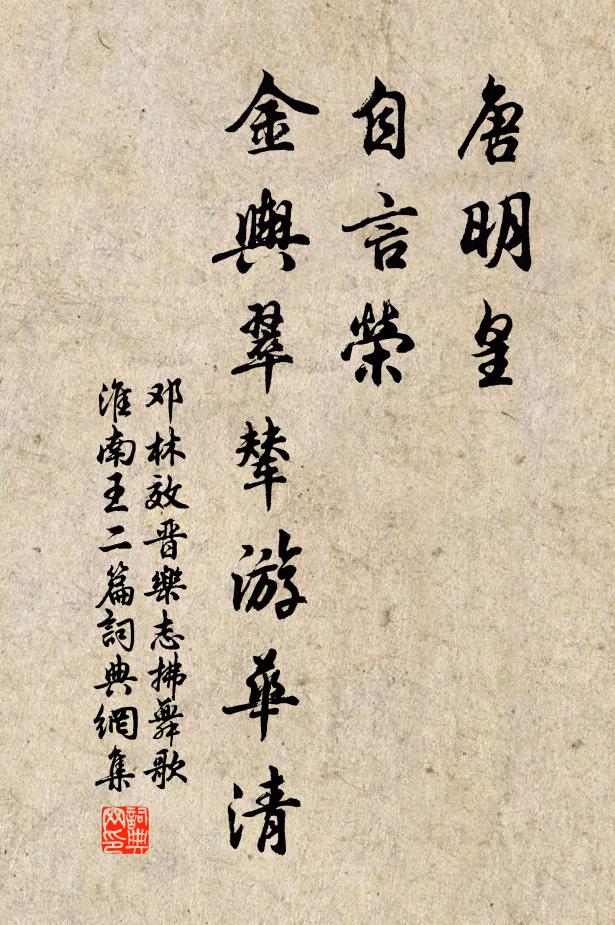 唐明皇
自言榮
金輿翠輦游華清
邓林效晋樂志拂舞歌
淮南王二篇詞典網集
詞典
网印